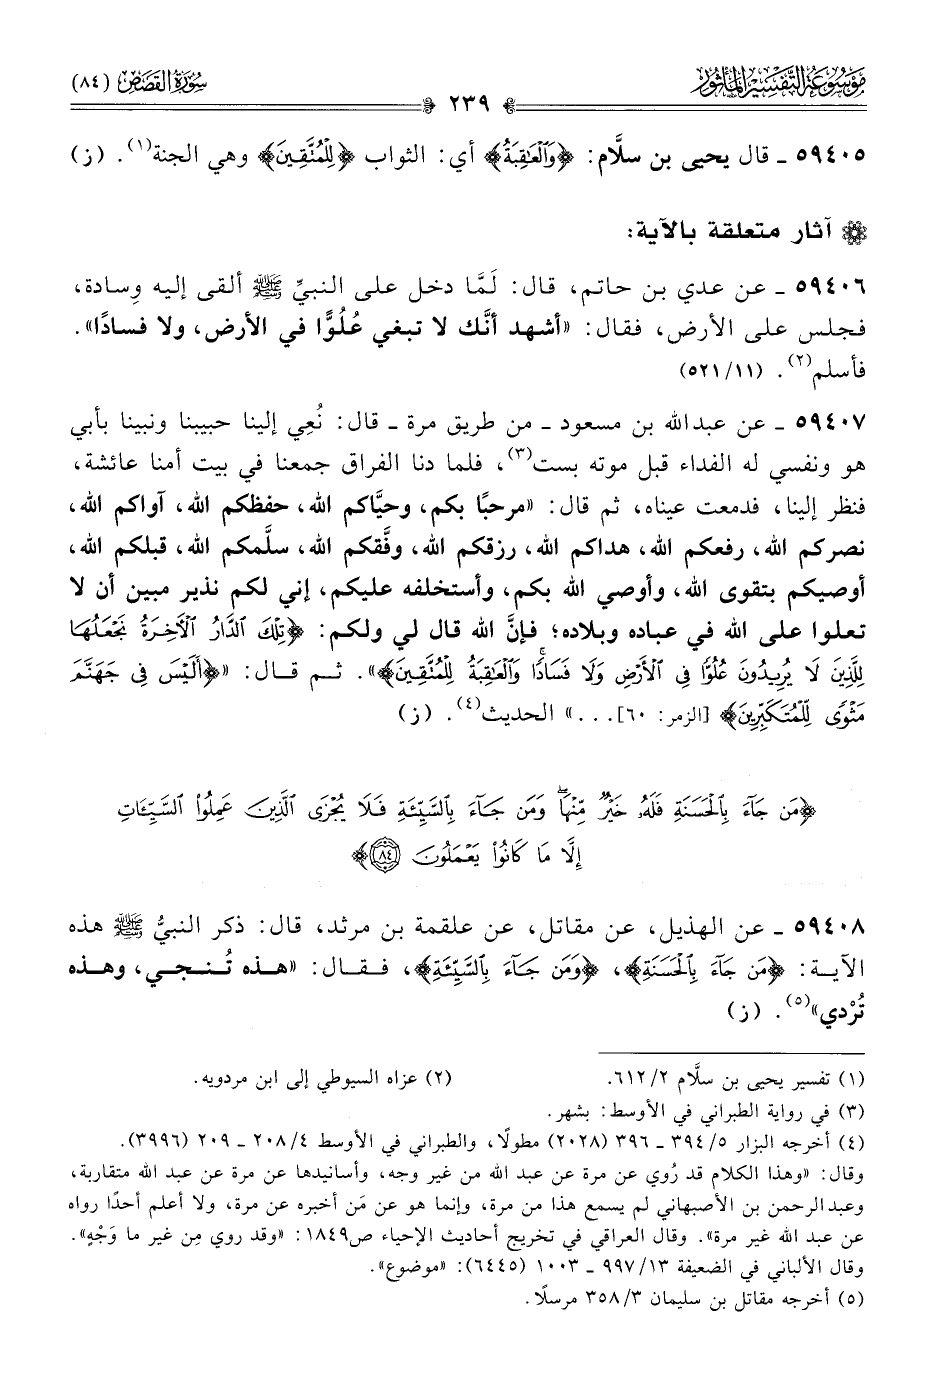 موسوعة التفسير المأثور
سورة القصص (٨٤)
٢٣٩
٥٩٤٠٥ ـ قال يحيى بن سلَّام: ﴿وَٱلْعَٰقِبَةُ﴾ أي: الثواب ﴿لِلْمُتَّقِينَ﴾ وهي الجنة(١). (ز)
آثار متعلقة بالآية:
٥٩٤٠٦ ـ عن عدي بن حاتم، قال: لَمَّا دخل على النبيِّ ﷺ ألقى إليه وِسادة،
فجلس على الأرض، فقال: «أشهد أنَّك لا تبغي عُلُوًّا في الأرض، ولا فسادًا».
فأسلم(٢). (٥٢١/١١)
٥٩٤٠٧ ـ عن عبدالله بن مسعود ـ من طريق مرة ـ قال: نُعِي إلينا حبيبنا ونبينا بأبي
هو ونفسي له الفداء قبل موته بست(٣)، فلما دنا الفراق جمعنا في بيت أمنا عائشة،
فنظر إلينا، فدمعت عيناه، ثم قال: «مرحبًا بكم، وحيَّاكم الله، حفظكم الله، آواكم الله،
نصركم الله، رفعكم الله، هداكم الله، رزقكم الله، وفَّقكم الله، سلَّمكم الله، قبلكم الله،
أوصيكم بتقوى الله، وأوصي الله بكم، وأستخلفه عليكم، إني لكم نذير مبين أن لا
تعلوا على الله في عباده وبلاده؛ فإنَّ الله قال لي ولكم: ﴿تِلْكَ ٱلدَّارُ ٱلْـَٔاخِرَةُ نَجْعَلُهَا
لِلَّذِينَ لَا يُرِيدُونَ عُلُوًّا فِى ٱلْأَرْضِ وَلَا فَسَادًا ۚ وَٱلْعَٰقِبَةُ لِلْمُتَّقِينَ﴾». ثم قال: «﴿أَلَيْسَ فِى جَهَنَّمَ
مَثْوًى لِّلْمُتَكَبِّرِينَ﴾ [الزمر: ٦٠]...» الحديث(٤). (ز)
﴿مَن جَآءَ بِٱلْحَسَنَةِ فَلَهُۥ خَيْرٌ مِّنْهَا ۖ وَمَن جَآءَ بِٱلسَّيِّئَةِ فَلَا يُجْزَى ٱلَّذِينَ عَمِلُوا۟ ٱلسَّيِّـَٔاتِ
إِلَّا مَا كَانُوا۟ يَعْمَلُونَ ٨٤﴾
٥٩٤٠٨ ـ عن الهذيل، عن مقاتل، عن علقمة بن مرثد، قال: ذكر النبيُّ ﷺ هذه
الآية: ﴿مَن جَآءَ بِٱلْحَسَنَةِ﴾، ﴿وَمَن جَآءَ بِٱلسَّيِّئَةِ﴾، فقال: «هذه تُنجي، وهذه
تُرْدي»(٥). (ز)
(١) تفسير يحيى بن سلَّام ٦١٢/٢.
(٢) عزاه السيوطي إلى ابن مردويه.
(٣) في رواية الطبراني في الأوسط: بشهر.
(٤) أخرجه البزار ٣٩٤/٥ ـ ٣٩٦ (٢٠٢٨) مطولًا، والطبراني في الأوسط ٢٠٨/٤ ـ ٢٠٩ (٣٩٩٦).
وقال: «وهذا الكلام قد رُوي عن مرة عن عبد الله من غير وجه، وأسانيدها عن مرة عن عبد الله متقاربة،
وعبدالرحمن بن الأصبهاني لم يسمع هذا من مرة، وإنما هو عن مَن أخبره عن مرة، ولا أعلم أحدًا رواه
عن عبد الله غير مرة». وقال العراقي في تخريج أحاديث الإحياء ص١٨٤٩: «وقد روي مِن غير ما وَجْهٍ».
وقال الألباني في الضعيفة ٩٩٧/١٣ ـ ١٠٠٣ (٦٤٤٥): «موضوع».
(٥) أخرجه مقاتل بن سليمان ٣٥٨/٣ مرسلًا.